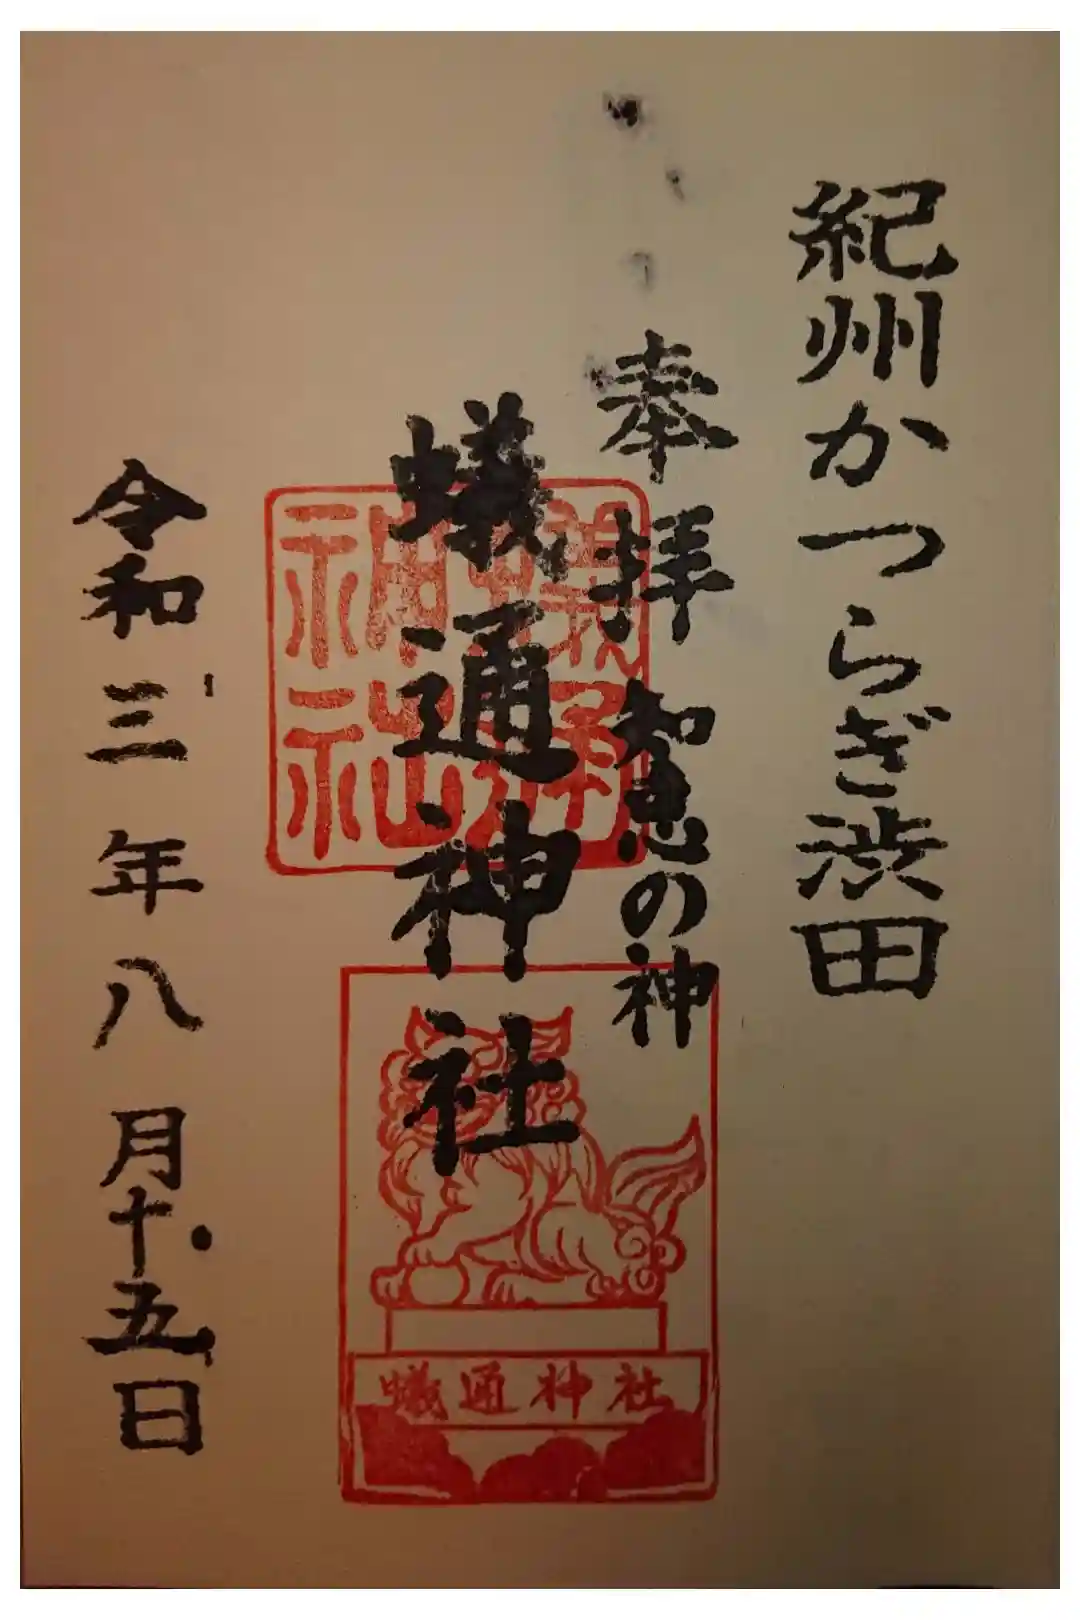 紀州かつらぎ渋田
奉拝 知恵の神
蟻通神社
令和三年八月十五日
蟻通神社